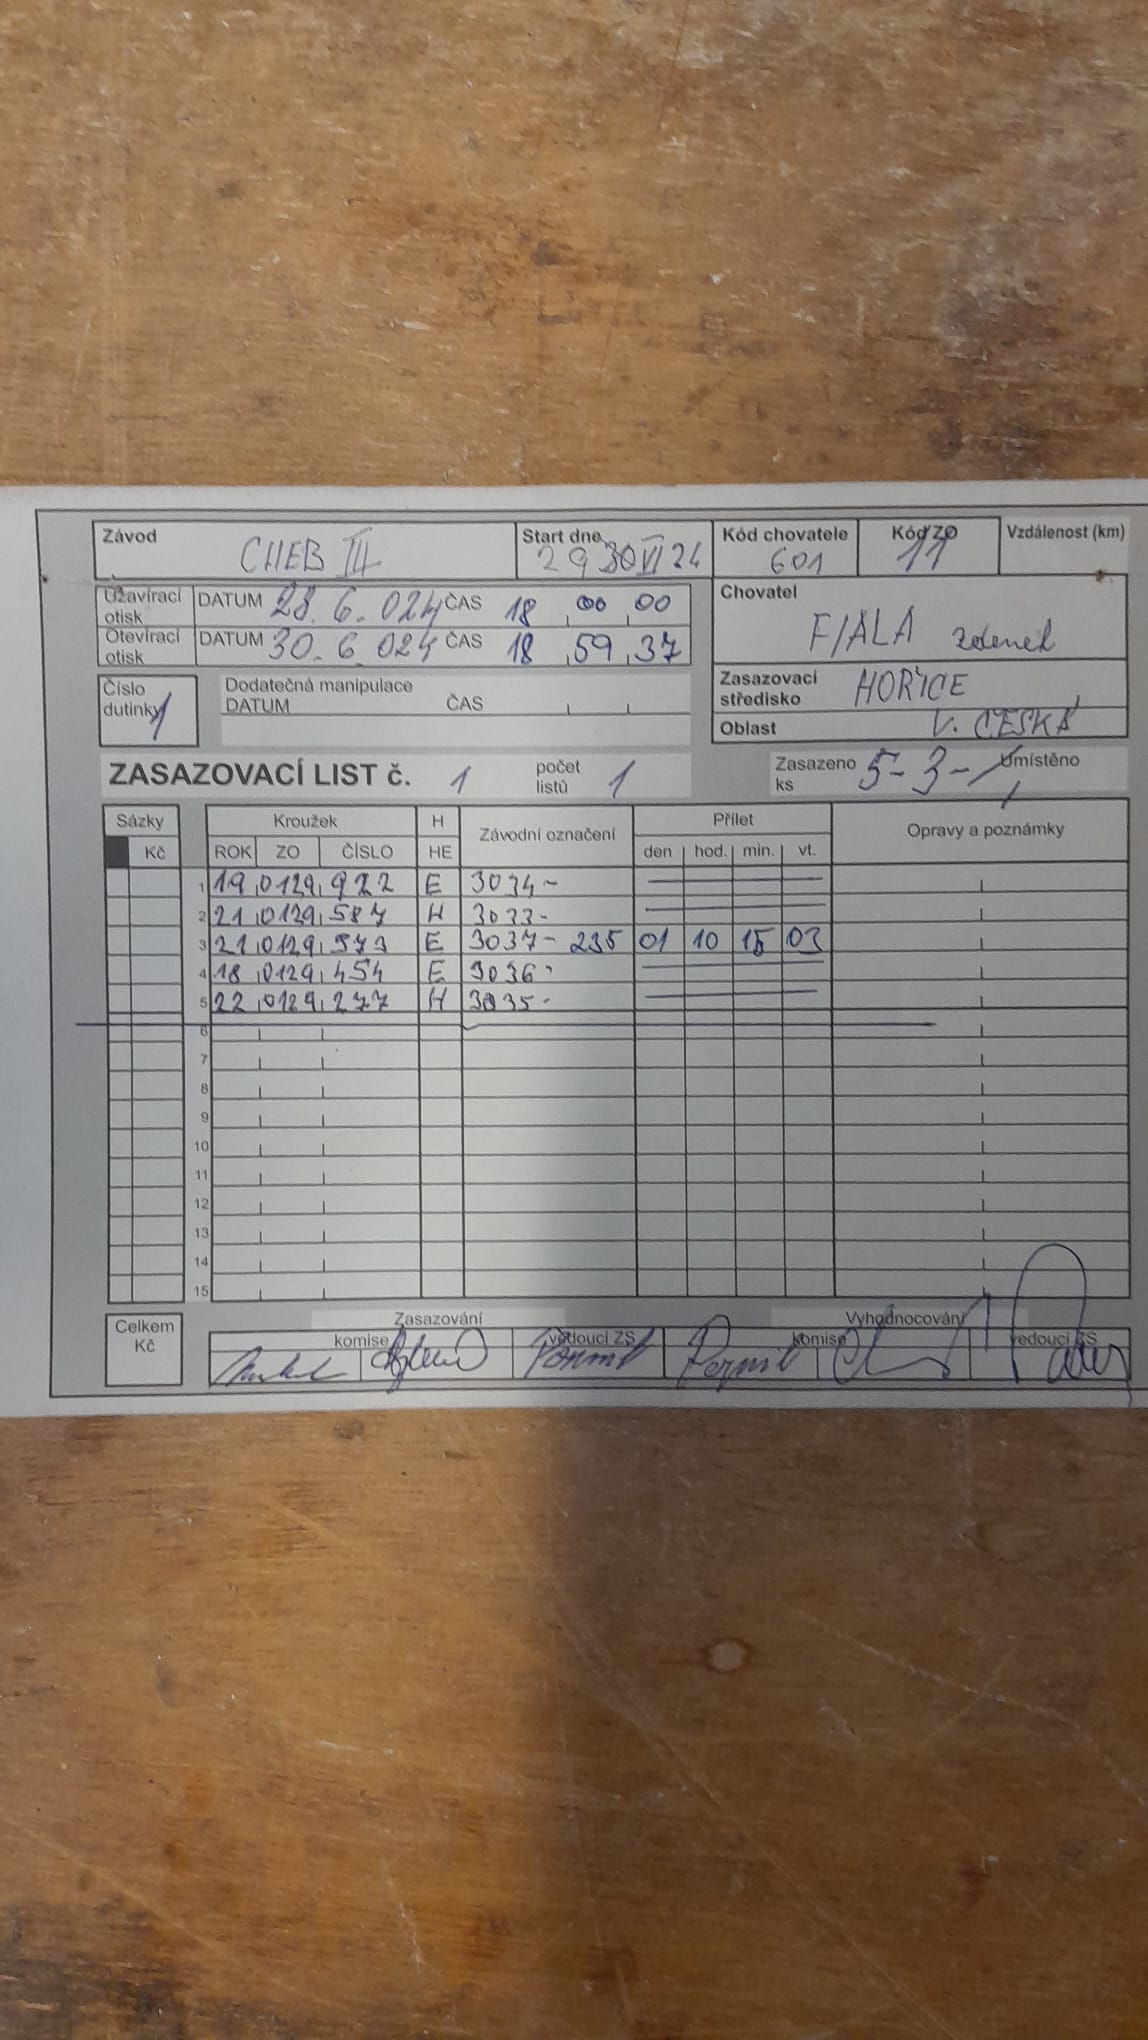 Závod CHEB III Start dne 29 30 VI 24 Kód chovatele 601 Kód ZO 11 Vzdálenost (km)
Uzavírací otisk DATUM 28. 6. 024 ČAS 18 00 00
Otevírací otisk DATUM 30. 6 024 ČAS 18 59 37
Chovatel FIALA Zdeněk
Číslo dutinky 1 Dodatečná manipulace
DATUM ČAS
Zasazovací středisko HOŘICE
Oblast V. ČESKÁ
ZASAZOVACÍ LIST č. 1 počet listů 1 Zasazeno ks 5-3- Umístěno 1
Sázky Kroužek H Závodní označení Přílet Opravy a poznámky
Kč ROK ZO ČÍSLO HE den hod. min. vt.
1 19 0129 922 E 3034-
2 21 0129 587 H 3033-
3 21 0129 573 E 3037- 235 01 10 15 03
4 18 0129 454 E 3036-
5 22 0129 277 H 3035-
6
7
8
9
10
11
12
13
14
15
Celkem Kč Zasazování Vyhodnocování
komise vedoucí ZS komise vedoucí ZS